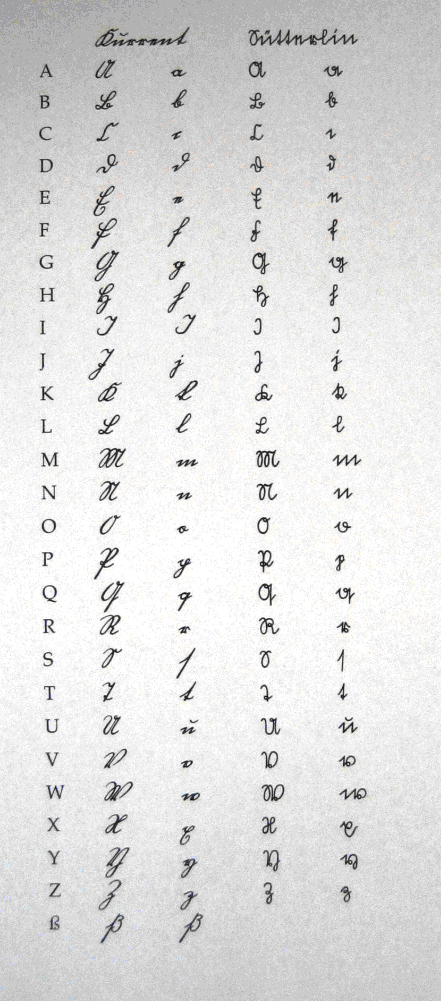 Kurrent Sütterlin
A A a A a
B B b B b
C C c C c
D D d D d
E E e E e
F F f F f
G G g G g
H H h H h
I I I I I
J J j J j
K K k K k
L L l L l
M M m M m
N N n N n
O O o O o
P P p P p
Q Q q Q q
R R r R r
S S ſ S ſ
T T t T t
U U u U u
V V v V v
W W w W w
X X x X x
Y Y y Y y
Z Z z Z z
ß ß ß